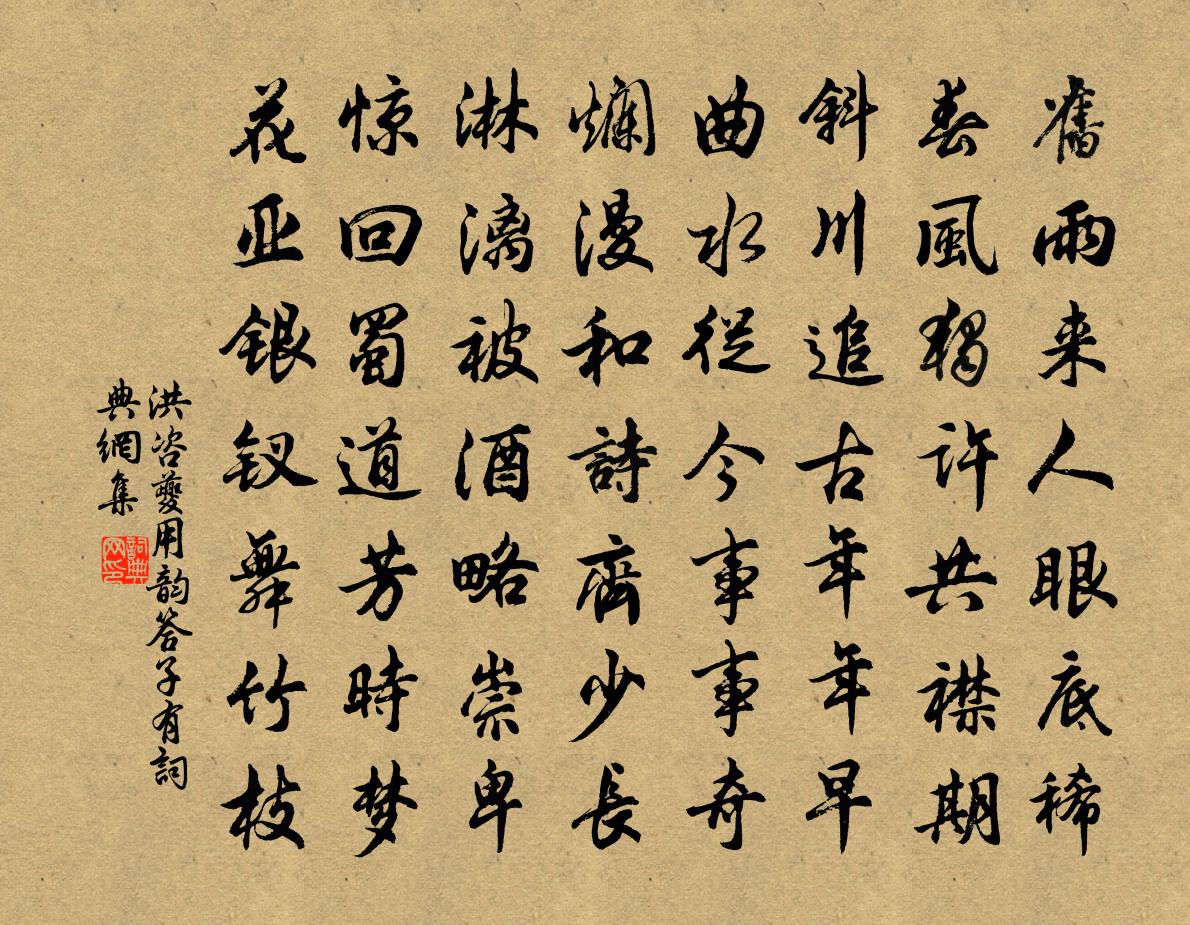 舊雨来人眼底稀
春風獨许共襟期
斜川追古年年早
曲水從今事事奇
爛漫和詩齊少長
淋漓被酒略崇卑
惊回蜀道芳時梦
花亚银钗舞竹枝
洪咨夔用韵答子有詞
典網集
詞典网印